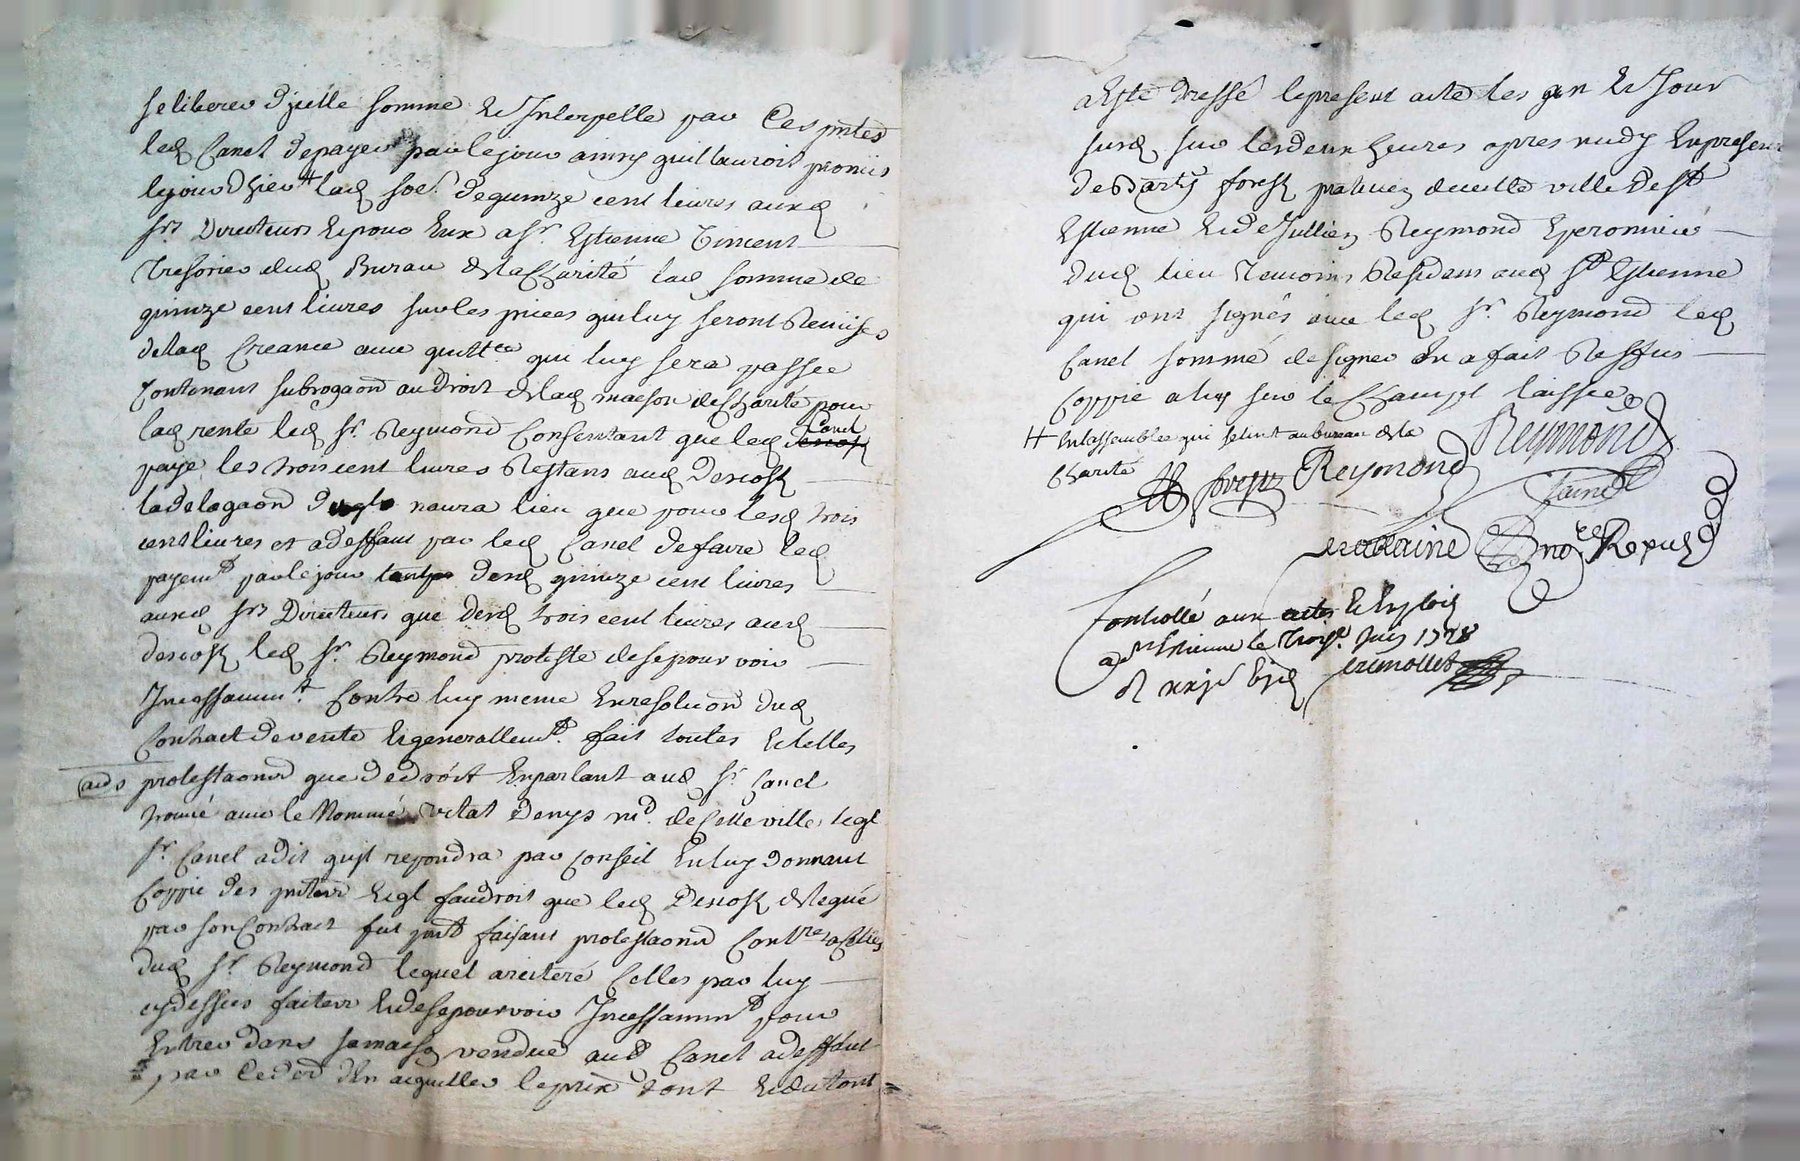 se liberer d'jcelle somme et Interpelle par Ces pntes
led Canel de payer par le jour ainsy quil lauroit promis
le jour d'hier # lad soe. de quinze cent livres auxd
srs Directeurs et pour Eux a sr. Estienne Vincent
Tresorier dud Bureau de la Charité lad somme de
quinze cent livres sur les pieces qui luy seront Remises
de lad Creance avec quittce qui luy sera passée
Contenant subrogaon au droit de lad maison de Charité pour
lad rente led sr. Reymond Consentant que led Canel
paye les trois cent livres Restans aud Descos
la delegaon naura lieu que pour lesd trois
cent livres et a deffaut par led Canel de faire led
payemt par le jour desd quinze cent livres
auxd srs Directeurs que desd trois cent livres aud
Descos led sr. Reymond proteste de se pourvoir
Incessamt. Contre luy meme En resoluon dud
Contract de vente Et generallemt. fait toutes Et telles
protestaons que de droit En parlant aud sr Canel
trouvé avec le Nommé Vital Denys md. de Cette ville leql
sr. Canel a dit qu'jl repondra par Conseil En luy donnant
Coppie des pntes Et ql faudroit que led Descos delegué
par son Contract fut pnt faisant protestaons Contre Celles
dud sr. Reymond lequel a reiteré Celles par luy
cy dessus faites Et de se pourvoir Incessammt pour
Entrer dans sa maison vendue aud Canel a deffaut
par led d'En aiguiller le prix dont Et du tout
a Esté dressé le present acte les an Et Jour
susd sur les deux heures apres midy En presence
de praticien de cette ville de st
Estienne Et de Jullien Reymond Eperonnier
dud lieu Temoins Residens aud st Estienne
qui ont signés avec led sr. Reymond led
Canel sommé de signer En a fait Reffus
Coppie a luy sur le Champ laissée
# En lassemblée qui se tint au bureau de la
Charité
Reymond
Reymond
nore Royal
Controllé aux actes Et Exploits
a st Estienne le Juin 1728